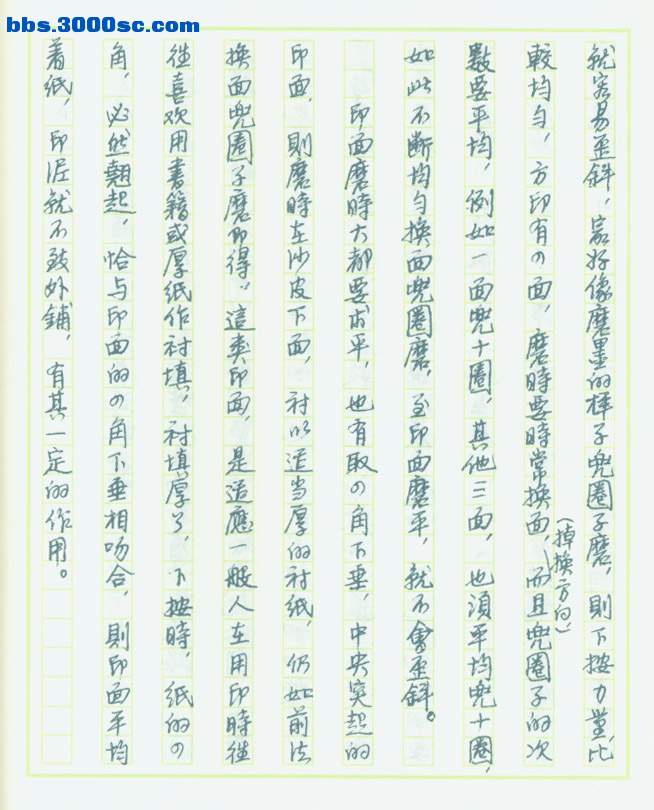 bbs.3000sc.com
就容易歪斜，最好像磨墨的样子兜圈子磨，則下按力量，比
較均匀，方印有の面，磨時要時常换面，而且兜圈子的次
（掉換方向）
數要平均，例如一面兜十圈，其他三面，也須平均兜十圈，
如此不断均匀换面兜圈磨，至印面磨平，就不會歪斜。
印面磨時大都要求平，也有取の角下垂，中央突起的
印面，則磨時在沙皮下面，衬以适当厚的衬纸，仍如前法
换面兜圈子磨即得。這类印面，是适應一般人在用印時往
往喜欢用書籍或厚纸作衬填，衬填厚了，下按時，纸的の
角，必然翹起，恰与印面的の角下垂相吻合，則印面平均
着纸，印泥就不致外鋪，有其一定的作用。